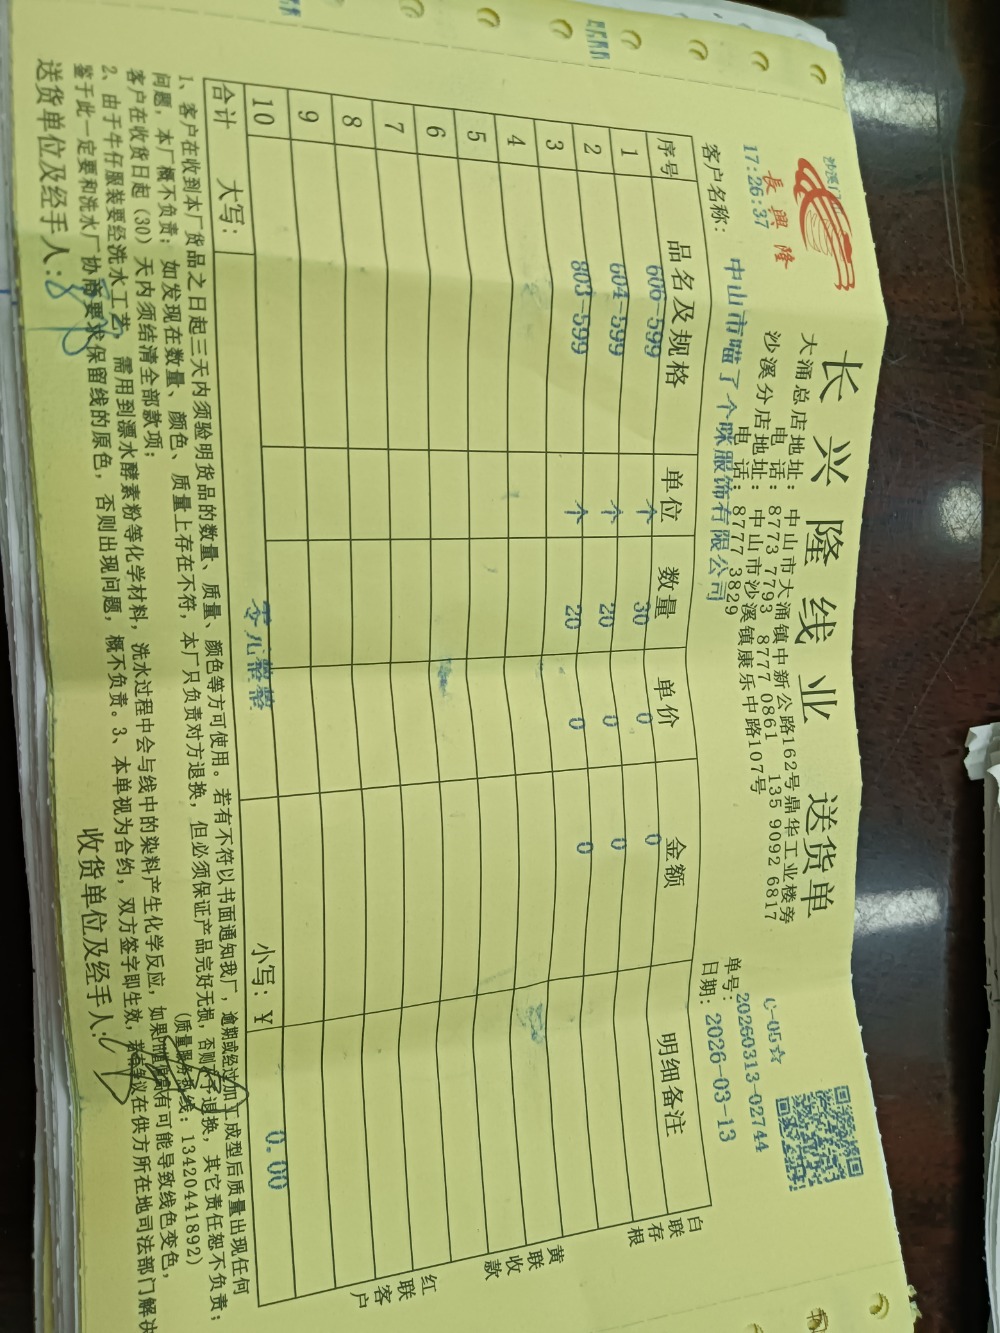 長興隆
17:26:37
长兴隆线业 送货单
大涌总店地址：中山市大涌镇中新公路162号鼎华工业楼旁
电 话：8773 7793 8777 0861 135 9092 6817
沙溪分店地址：中山市沙溪镇康乐中路107号
电 话：8777 3829
C-05☆
单号：20260313-02744
客户名称：中山市喵了个咪服饰有限公司
日期：2026-03-13
序号 品名及规格 单位 数量 单价 金额 明细备注
1 606-599 个 30 0 0
2 604-599 个 20 0 0
3 803-599 个 20 0 0
4
5
6
7
8
9
10
合计 大写：零元整整 小写：￥ 0.00
白联存根
黄联收款
红联客户
1、客户在收到本厂货品之日起三天内须验明货品的数量、质量、颜色等方可使用。若有不符以书面通知我厂，逾期或经过加工成型后质量出现任何
问题，本厂概不负责；如发现在数量、颜色、质量上存在不符，本厂只负责对方退换，但必须保证产品完好无损，否则不予退换，其它责任恕不负责；
客户在收货日起（30）天内须结清全部款项；
（质量服务热线：13420441892）
2、由于牛仔服装要经洗水工艺，需用到漂水酵素粉等化学材料，洗水过程中会与线中的染料产生化学反应，如果 有可能导致线色变色，
鉴于此一定要和洗水厂协商要求保留线的原色，否则出现问题，概不负责。3、本单视为合约，双方签字即生效，若有争议在供方所在地司法部门解决
送货单位及经手人：
收货单位及经手人：